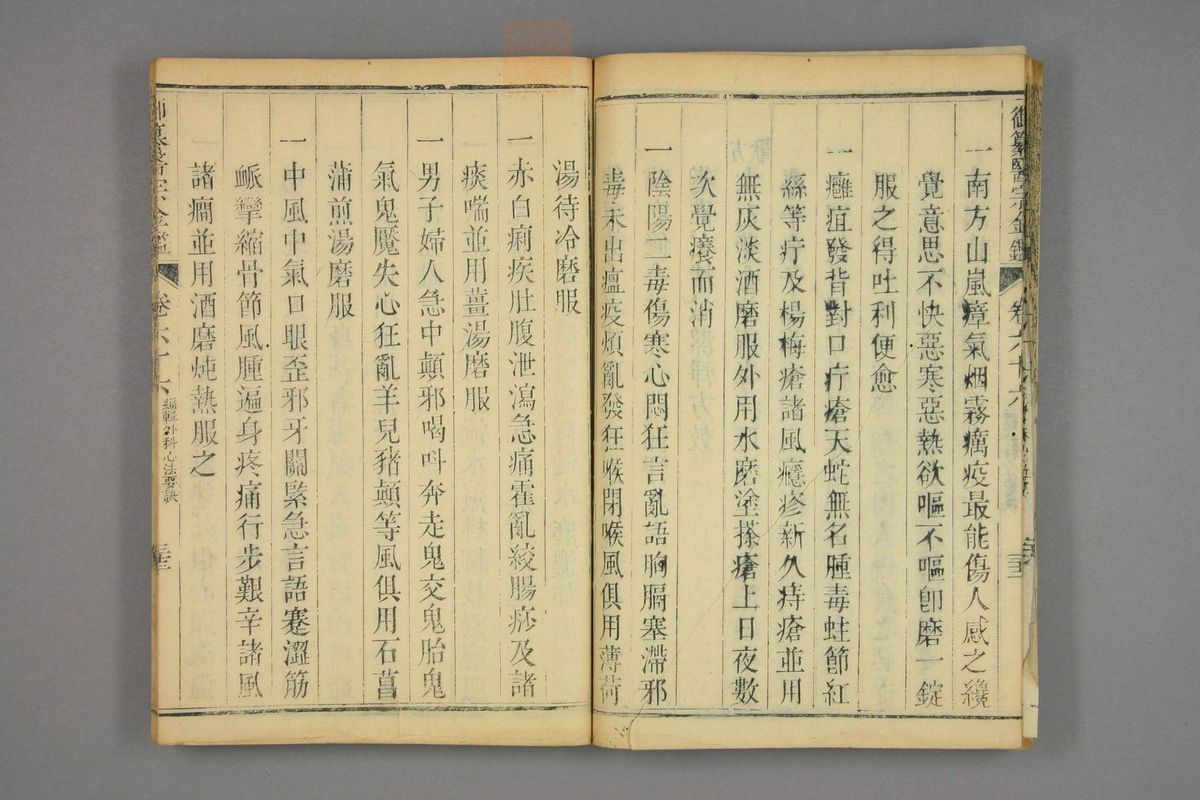 御纂醫宗金鑑 卷六十六
一南方山嵐瘴氣烟霧癘疫最能傷人感之纔
覺意思不快惡寒惡熱欲嘔不嘔卽磨一錠
服之得吐利便愈
一癰疽發背對口疔瘡天蛇無名腫毒蛀節紅
絲等疔及楊梅瘡諸風癮疹新久痔瘡並用
無灰淡酒磨服外用水磨塗搽瘡上日夜數
次覺癢而消
一陰陽二毒傷寒心悶狂言亂語胸膈塞滯邪
毒未出瘟疫煩亂發狂喉閉喉風俱用薄荷
湯待冷磨服
一赤白痢疾肚腹泄瀉急痛霍亂絞腸痧及諸
痰喘並用薑湯磨服
一男子婦人急中顛邪喝呌奔走鬼交鬼胎鬼
氣鬼魘失心狂亂羊兒豬顛等風俱用石菖
蒲煎湯磨服
一中風中氣口眼歪邪牙關緊急言語蹇澀筋
脈攣縮骨節風腫遍身疼痛行步艱辛諸風
諸癎並用酒磨炖熱服之
御纂醫宗金鑑 卷六十六 編輯外科心法要訣